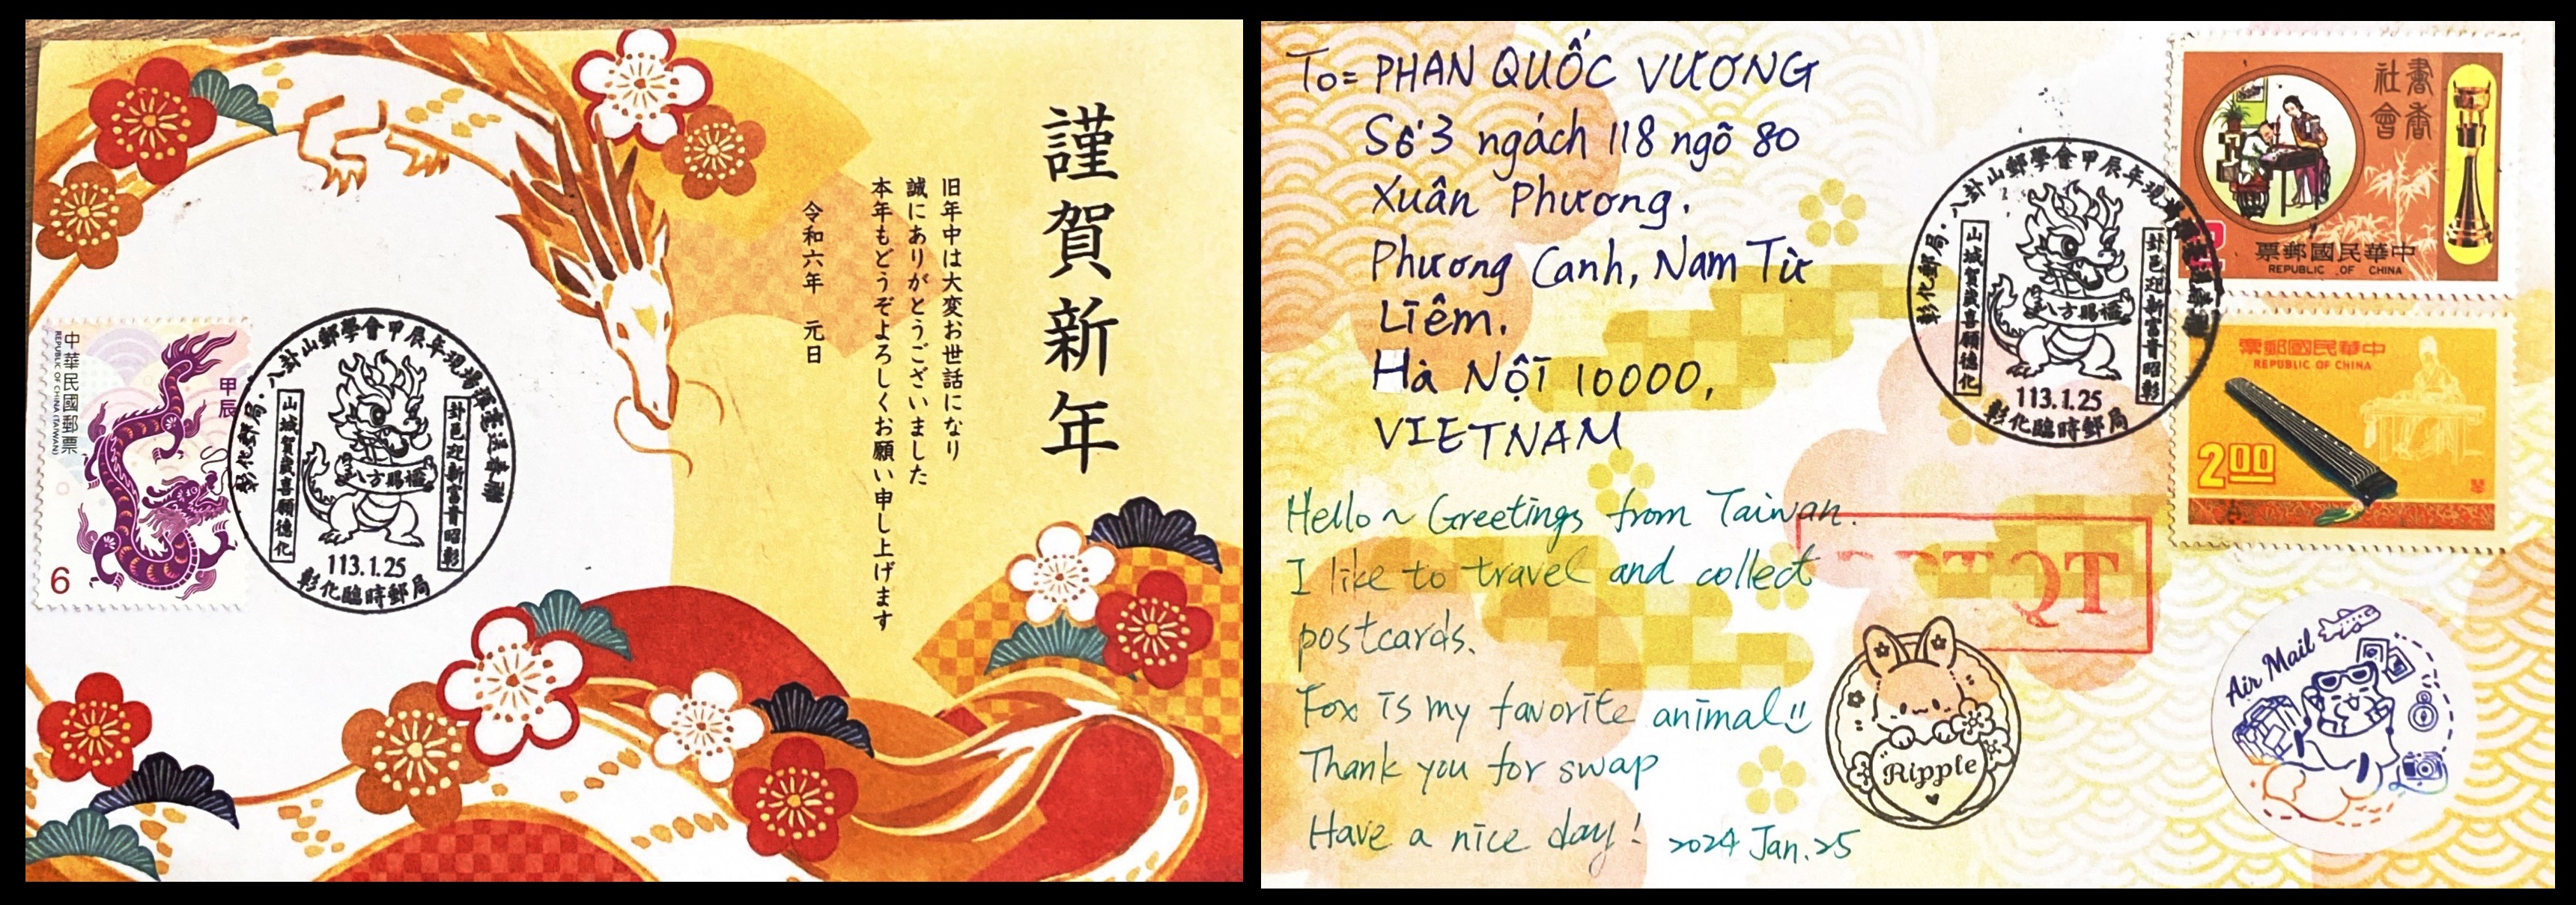 謹賀新年
旧年中は大変お世話になり
誠にありがとうございました
本年もどうぞよろしくお願い申し上げます
令和六年　元日
中華民國郵票
REPUBLIC OF CHINA (TAIWAN)
甲辰
6
彰化郵局·八卦山郵學會甲辰年現場揮毫送春聯
山城賀歲喜願德化
卦邑迎新富貴昭彰
八方賜福
113.1.25
彰化臨時郵局
To= PHAN QUỐC VƯƠNG
Số 3 ngách 118 ngõ 80
Xuân Phương.
Phương Canh, Nam Từ
Liêm.
Hà Nội 10000,
VIETNAM
Hello ~ Greetings from Taiwan.
I like to travel and collect
postcards.
Fox is my favorite animal!!
Thank you for swap
Have a nice day!
2024 Jan. 25
彰化郵局·八卦山郵學會甲辰年現場
山城賀歲喜願德化
卦邑迎新富貴昭彰
八方賜福
113.1.25
彰化臨時郵局
書香
社會
票郵國民華中
REPUBLIC OF CHINA
票郵國民華中
REPUBLIC OF CHINA
2.00
琴
QT
Ripple
Air Mail